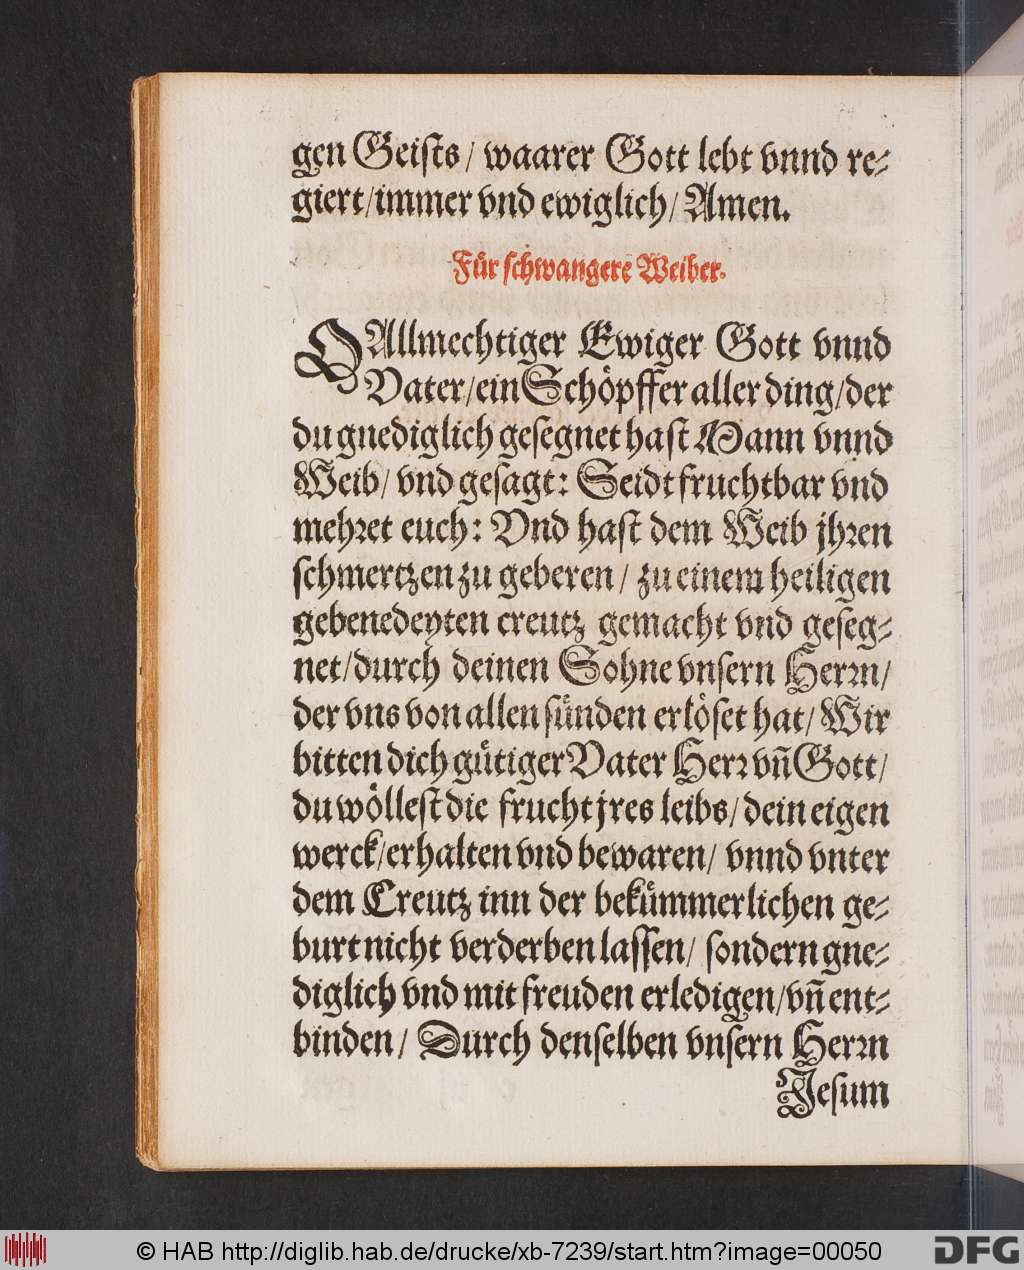 gen Geiſts / waarer Gott lebt vnnd re⸗
giert / immer vnd ewiglich / Amen.
Für ſchwangere Weiber.
O Allmechtiger Ewiger Gott vnnd
Vater / ein Schöpffer aller ding / der
du gnediglich geſegnet haſt Mann vnnd
Weib / vnd geſagt: Seidt fruchtbar vnd
mehꝛet euch: Vnd haſt dem Weib jhꝛen
ſchmertzen zu geberen / zu einem heiligen
gebenedeyten creutz gemacht vnd geſeg⸗
net / durch deinen Sohne vnſern Herꝛn /
der vns von allen ſünden erlöſet hat / Wir
bitten dich gütiger Vater Herꝛ vñ Gott /
du wölleſt die frucht jres leibs / dein eigen
werck / erhalten vnd bewaren / vnnd vnter
dem Creutz inn der bekümmerlichen ge⸗
burt nicht verderben laſſen / ſondern gne⸗
diglich vnd mit freuden erledigen / vñ ent⸗
binden / Durch denſelben vnſern Herꝛn
Jeſum
© HAB http://diglib.hab.de/drucke/xb-7239/start.htm?image=00050
DFG